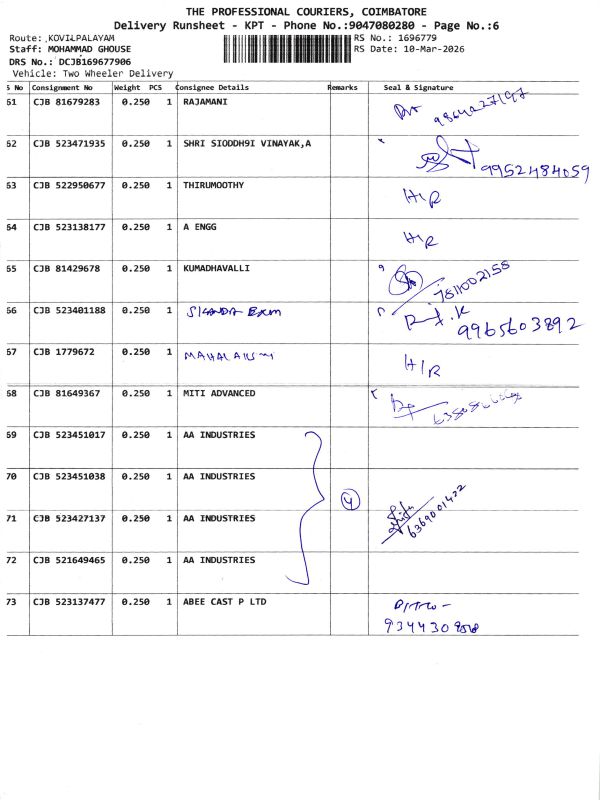 THE PROFESSIONAL COURIERS, COIMBATORE
Delivery Runsheet - KPT - Phone No.:9047080280 - Page No.:6
Route: KOVILPALAYAM
RS No.: 1696779
Staff: MOHAMMAD GHOUSE
RS Date: 10-Mar-2026
DRS No.: DCJB169677906
Vehicle: Two Wheeler Delivery
S No Consignment No Weight PCS Consignee Details Remarks Seal & Signature
61 CJB 81679283 0.250 1 RAJAMANI
62 CJB 523471935 0.250 1 SHRI SIODDH9I VINAYAK,A 9952484059
63 CJB 522950677 0.250 1 THIRUMOOTHY H/R
64 CJB 523138177 0.250 1 A ENGG H/R
65 CJB 81429678 0.250 1 KUMADHAVALLI
66 CJB 523401188 0.250 1 9965603892
67 CJB 1779672 0.250 1 H/R
68 CJB 81649367 0.250 1 MITI ADVANCED
69 CJB 523451017 0.250 1 AA INDUSTRIES
70 CJB 523451038 0.250 1 AA INDUSTRIES
4
71 CJB 523427137 0.250 1 AA INDUSTRIES 6369001422
72 CJB 521649465 0.250 1 AA INDUSTRIES
73 CJB 523137477 0.250 1 ABEE CAST P LTD